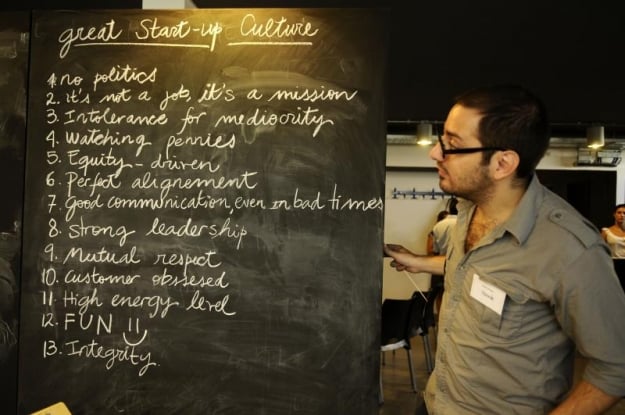 great Start-up Culture
1. no politics
2. it's not a job, it's a mission
3. Intolerance for mediocrity
4. Watching pennies
5. Equity - driven
6. Perfect alignement
7. Good communication, even in bad times
8. Strong leadership
9. Mutual respect
10. Customer obssesed
11 High energy level
12. FUN
13. Integrity